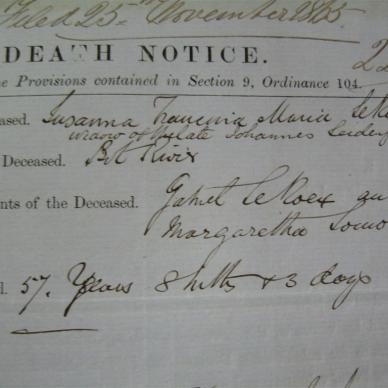 Filed 25th November 1865
DEATH NOTICE. 22
e Provisions contained in Section 9, Ordinance 104.
ased. Susanna Francina Maria LeRo
widow of the late Johannes
Deceased. Bot River
nts of the Deceased. Gabriel LeRoex an
Margaretha
d. 57 Years 8 Mths & 3 days